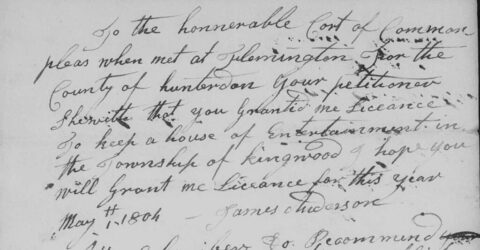 To the honnerable Cort of Common
pleas when met at Flemington For the
County of hunterdon Your petitioner
Shewith that you Grantid me Liceance
To keep a house of Entertainment in
the Township of Kingwood I hope you
will Grant me Liceance for this Year
May 1th 1804 James Anderson
to Recommend